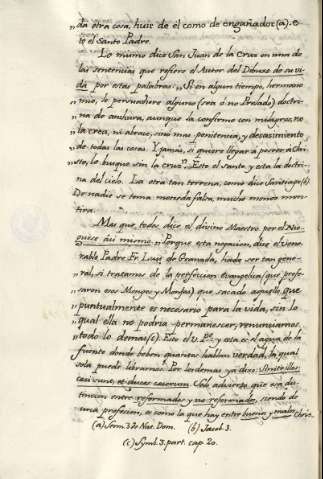 „da otra cosa, huie de él como de engañador (a). Es-
te el Santo Padre.
Lo mismo dice San Juan de la Cruz en una de
las sentencias que refiere el Autor del Dibuxo de su vi-
da por estas palabras: „Si en algun tiempo, hermano
„mio, le persuadiere alguno (sea ó no Prelado) doctri-
„na de anchura, aunque la confirme con milagros, no
„la crea, ni abrace, sino mas penitencia, y desasimiento
„de todas las cosas. Y jamás, si quiere llegar à poseer à Chris-
„to, lo busque sin la cruz". Este el santo, y esta la doctri-
na del cielo. La otra tan terrena, como dice Santiago (b).
De nadie se toma moneda falsa, mucho menos men-
tira.
Mas que todos dice el divino Maestro por el
à si mismo. „Porque esta negacion, dice el Vene-
rable Padre Fr. Luis de Granada, ha de ser tan gene-
ral, si tratamos de la perfeccion Evangelica (que profe-
„saron esos Monges y Monjas) que sacado aquello, que
„puntualmente es necesario para la vida, sin lo
„qual ella no podria permanescer, renunciemos
„todo lo demas (c). Este el V. P.e, y esta es el agua de la
fuente donde beben quantos hallan verdad, la qual
sola puede librarnos. Por los demas ya dixo:
caeci sunt, et duces caecorum. Vmd. advierta que esa dis-
tincion entre reformados y no reformados, siendo de
una profesion, es como la que hay entre buenos y malos chris-
(a) Serm. 32 Nat. Dom. (b) Jacob. 3.
(c) Symb. 3. part. cap. 20.